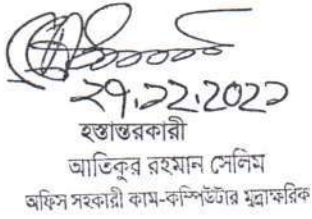 ২৭.১২.২০২১
হস্তান্তরকারী
আতিকুর রহমান সেলিম
অফিস সহকারী কাম-কম্পিউটার মুদ্রাক্ষরিক